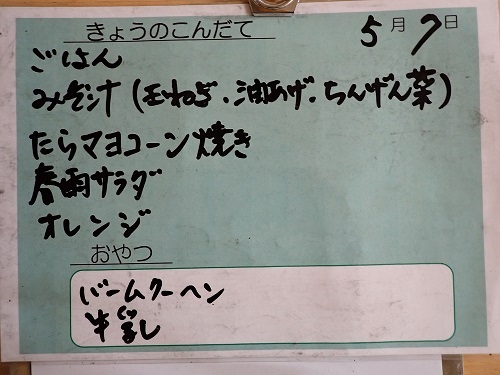 きょうのこんだて
5月7日
ごはん
みそ汁(玉ねぎ・油あげ・ちんげん菜)
たらマヨコーン焼き
春雨サラダ
オレンジ
おやつ
バームクーヘン
牛乳